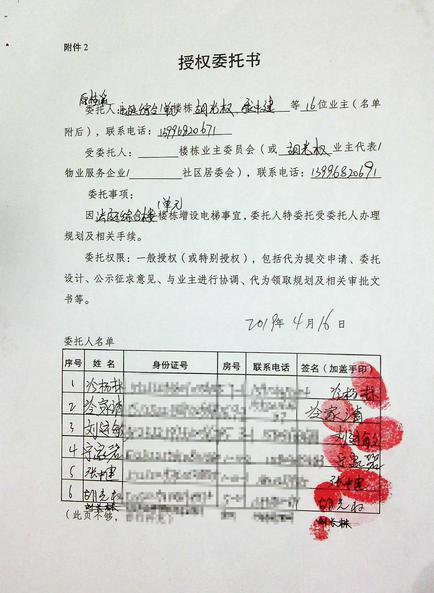 附件 2
授权委托书
委托人:法庭综合楼楼栋 胡光权、 等 16 位业主(名单
附后),联系电话:13996820671
受委托人:______楼栋业主委员会(或 胡光权 业主代表/
物业服务企业/______社区居委会),联系电话:13996820691
委托事项:
1单元
因法庭综合楼楼栋增设电梯事宜,委托人特委托受委托人办理
规划及相关手续。
委托权限:一般授权(或特别授权),包括代为提交申请、委托
设计、公示征求意见、与业主进行协调、代为领取规划及相关审批文
书等。
2019年 4月16日
委托人名单
序号 姓 名 身份证号 房号 联系电话 签名(加盖手印)
1 冷杨林 冷杨林
2 冷家清 冷家清
3 刘廷敏 刘廷敏
4
5 张中建 张中建
6 胡光权 胡光权
(此页不够,